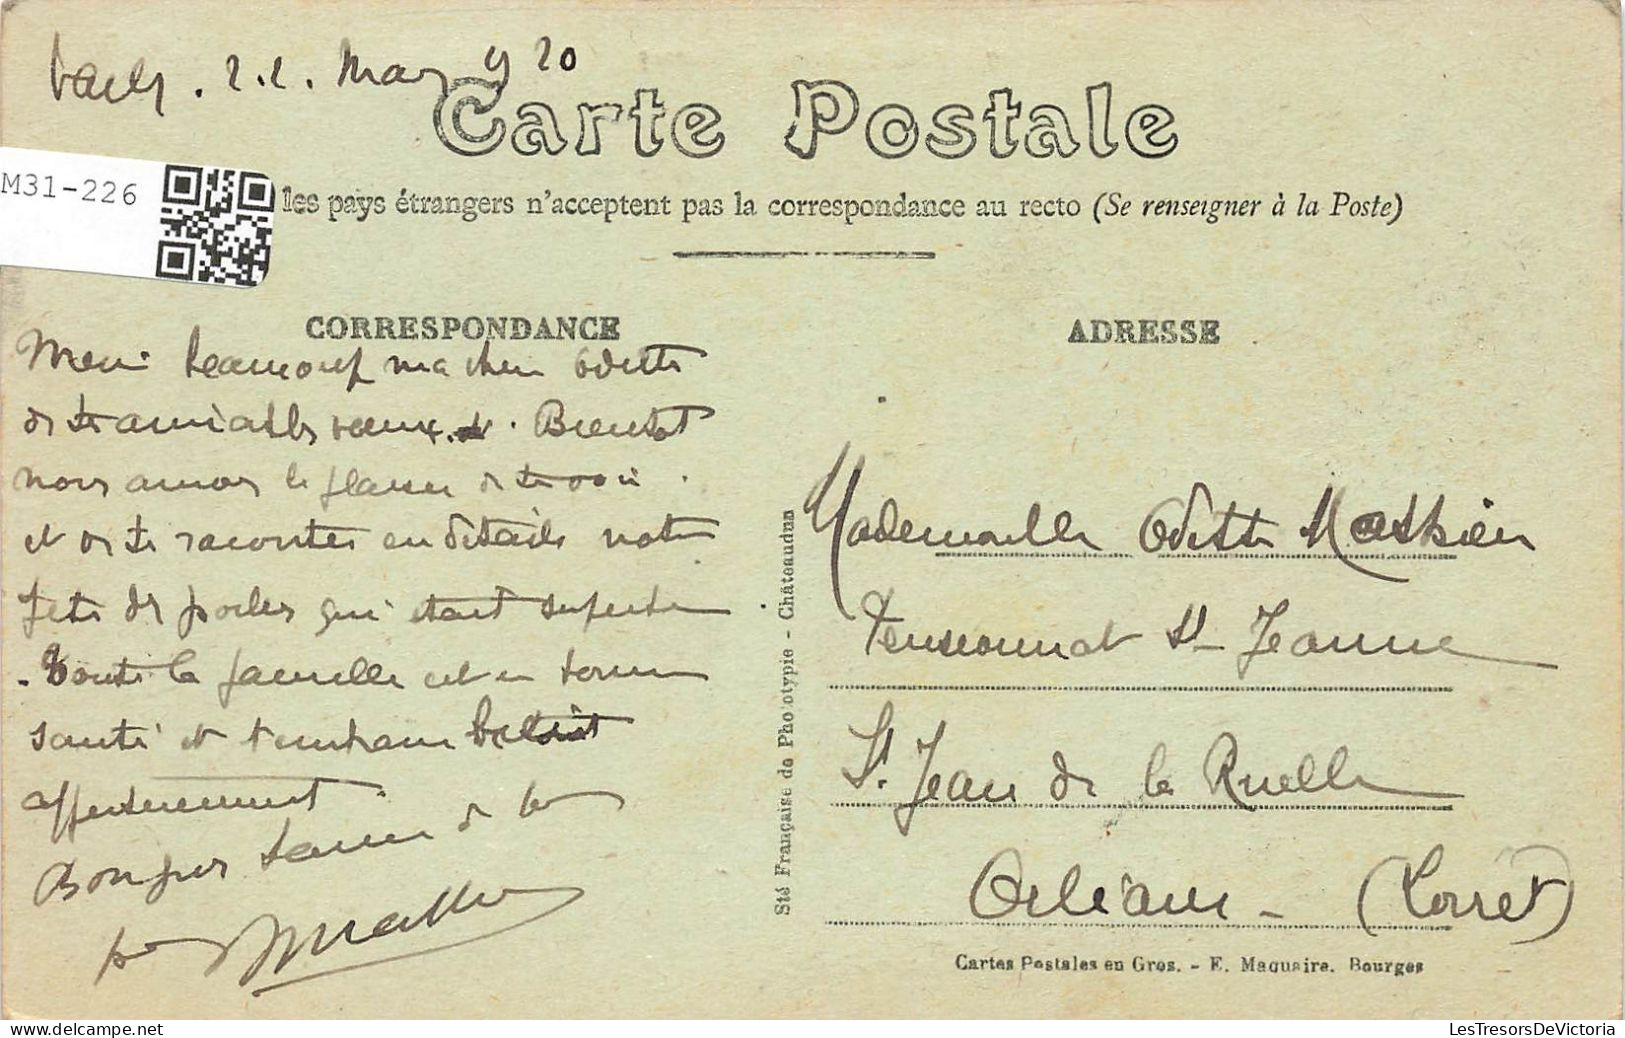 22. Mars 920
Carte Postale
M31-226
les pays étrangers n'acceptent pas la correspondance au recto (Se renseigner à la Poste)
CORRESPONDANCE
Merci beaucoup ma chère Odette
de tes aimables voeux. Bientôt
nous aurons le plaisir de te voir
et de te raconter en détails notre
fête de poilus qui était superbe
. Toute la famille est en bonne
santé et t'embrasse bien
affectueusement.
Bonjour
Mathieu
ADRESSE
Mademoiselle Odette Mathieu
Pensionnat St Jeanne
St. Jean de la Ruelle
Orléans - (Loiret)
Sté Française de Phototypie - Châteaudun
Cartes Postales en Gros. - E. Maquaire. Bourges
LesTresorsDeVictoria